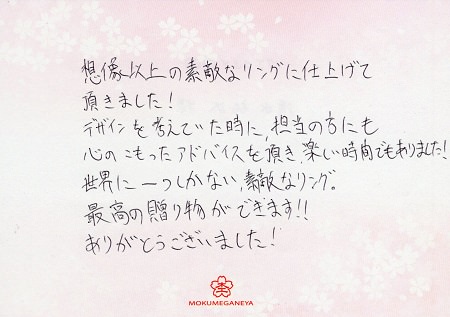 想像以上の素敵なリングに仕上げて
頂きました!
デザインを考えていた時に、担当の方にも
心のこもったアドバイスを頂き、楽しい時間でもありました!
世界に一つしかない、素敵なリング。
最高の贈り物ができます!!
ありがとうございました!
MOKUMEGANEYA